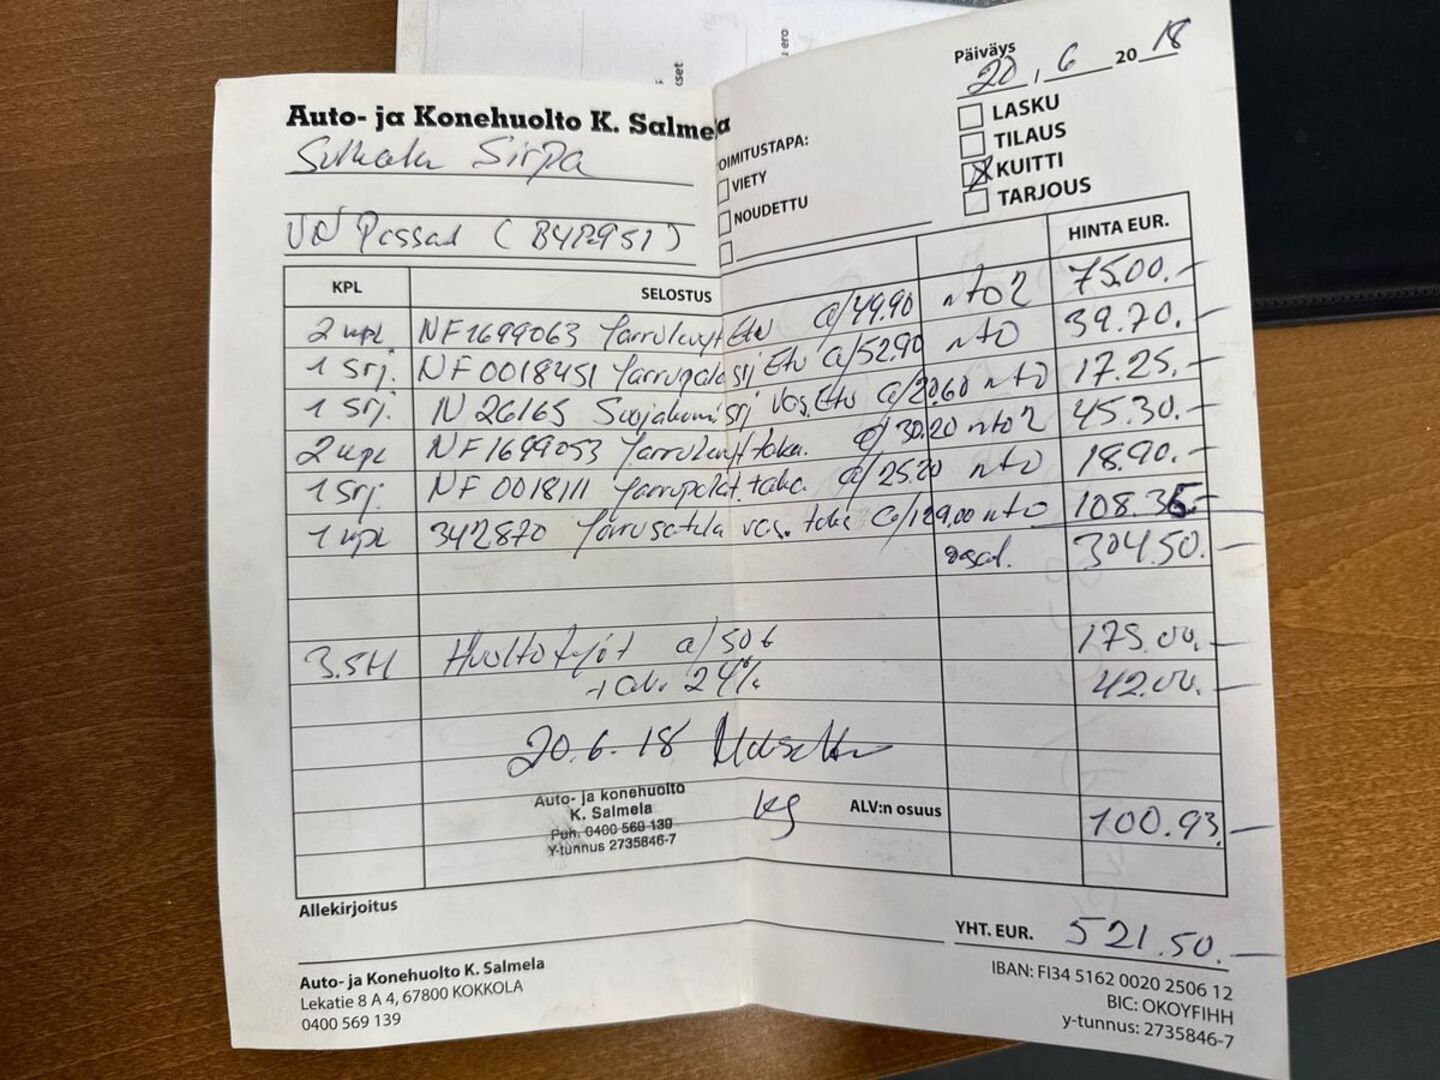 Päiväys
20, 6 2018
Auto- ja Konehuolto K. Salmela
Sirpa
VW Passad (
OIMITUSTAPA:
VIETY
NOUDETTU
LASKU
TILAUS
KUITTI
TARJOUS
KPL SELOSTUS HINTA EUR.
2 kpl NF1699063 Jarrulevyt Etu a/49.90 nto2 75.00.-
1 Srj. NF0018451 Jarrupalasrj Etu a/52.90 nto 39.70.-
1 Srj. N 26165 Suojakumisrj Vas. Etu a/20.60 nto 17.25.-
2 kpl NF1699053 Jarrulevyt taka. a/30.20 nto2 45.30.-
1 Srj. NF 0018111 Jarrupalat. taka a/25.20 nto 18.90.-
1 kpl 342870 Jarrusatula vas. taka a/129.00 nto 108.35-
osat. 304.50.-
3.5H Huoltotyöt a/50€ 175.00.-
+ alv. 24% 42.00.-
20.6.18
Auto- ja konehuolto
K. Salmela
Puh. 0400 569 139
Y-tunnus 2735846-7
ALV:n osuus 100.93.-
Allekirjoitus
YHT. EUR. 521.50.-
Auto- ja Konehuolto K. Salmela
Lekatie 8 A 4, 67800 KOKKOLA
0400 569 139
IBAN: FI34 5162 0020 2506 12
BIC: OKOYFIHH
y-tunnus: 2735846-7